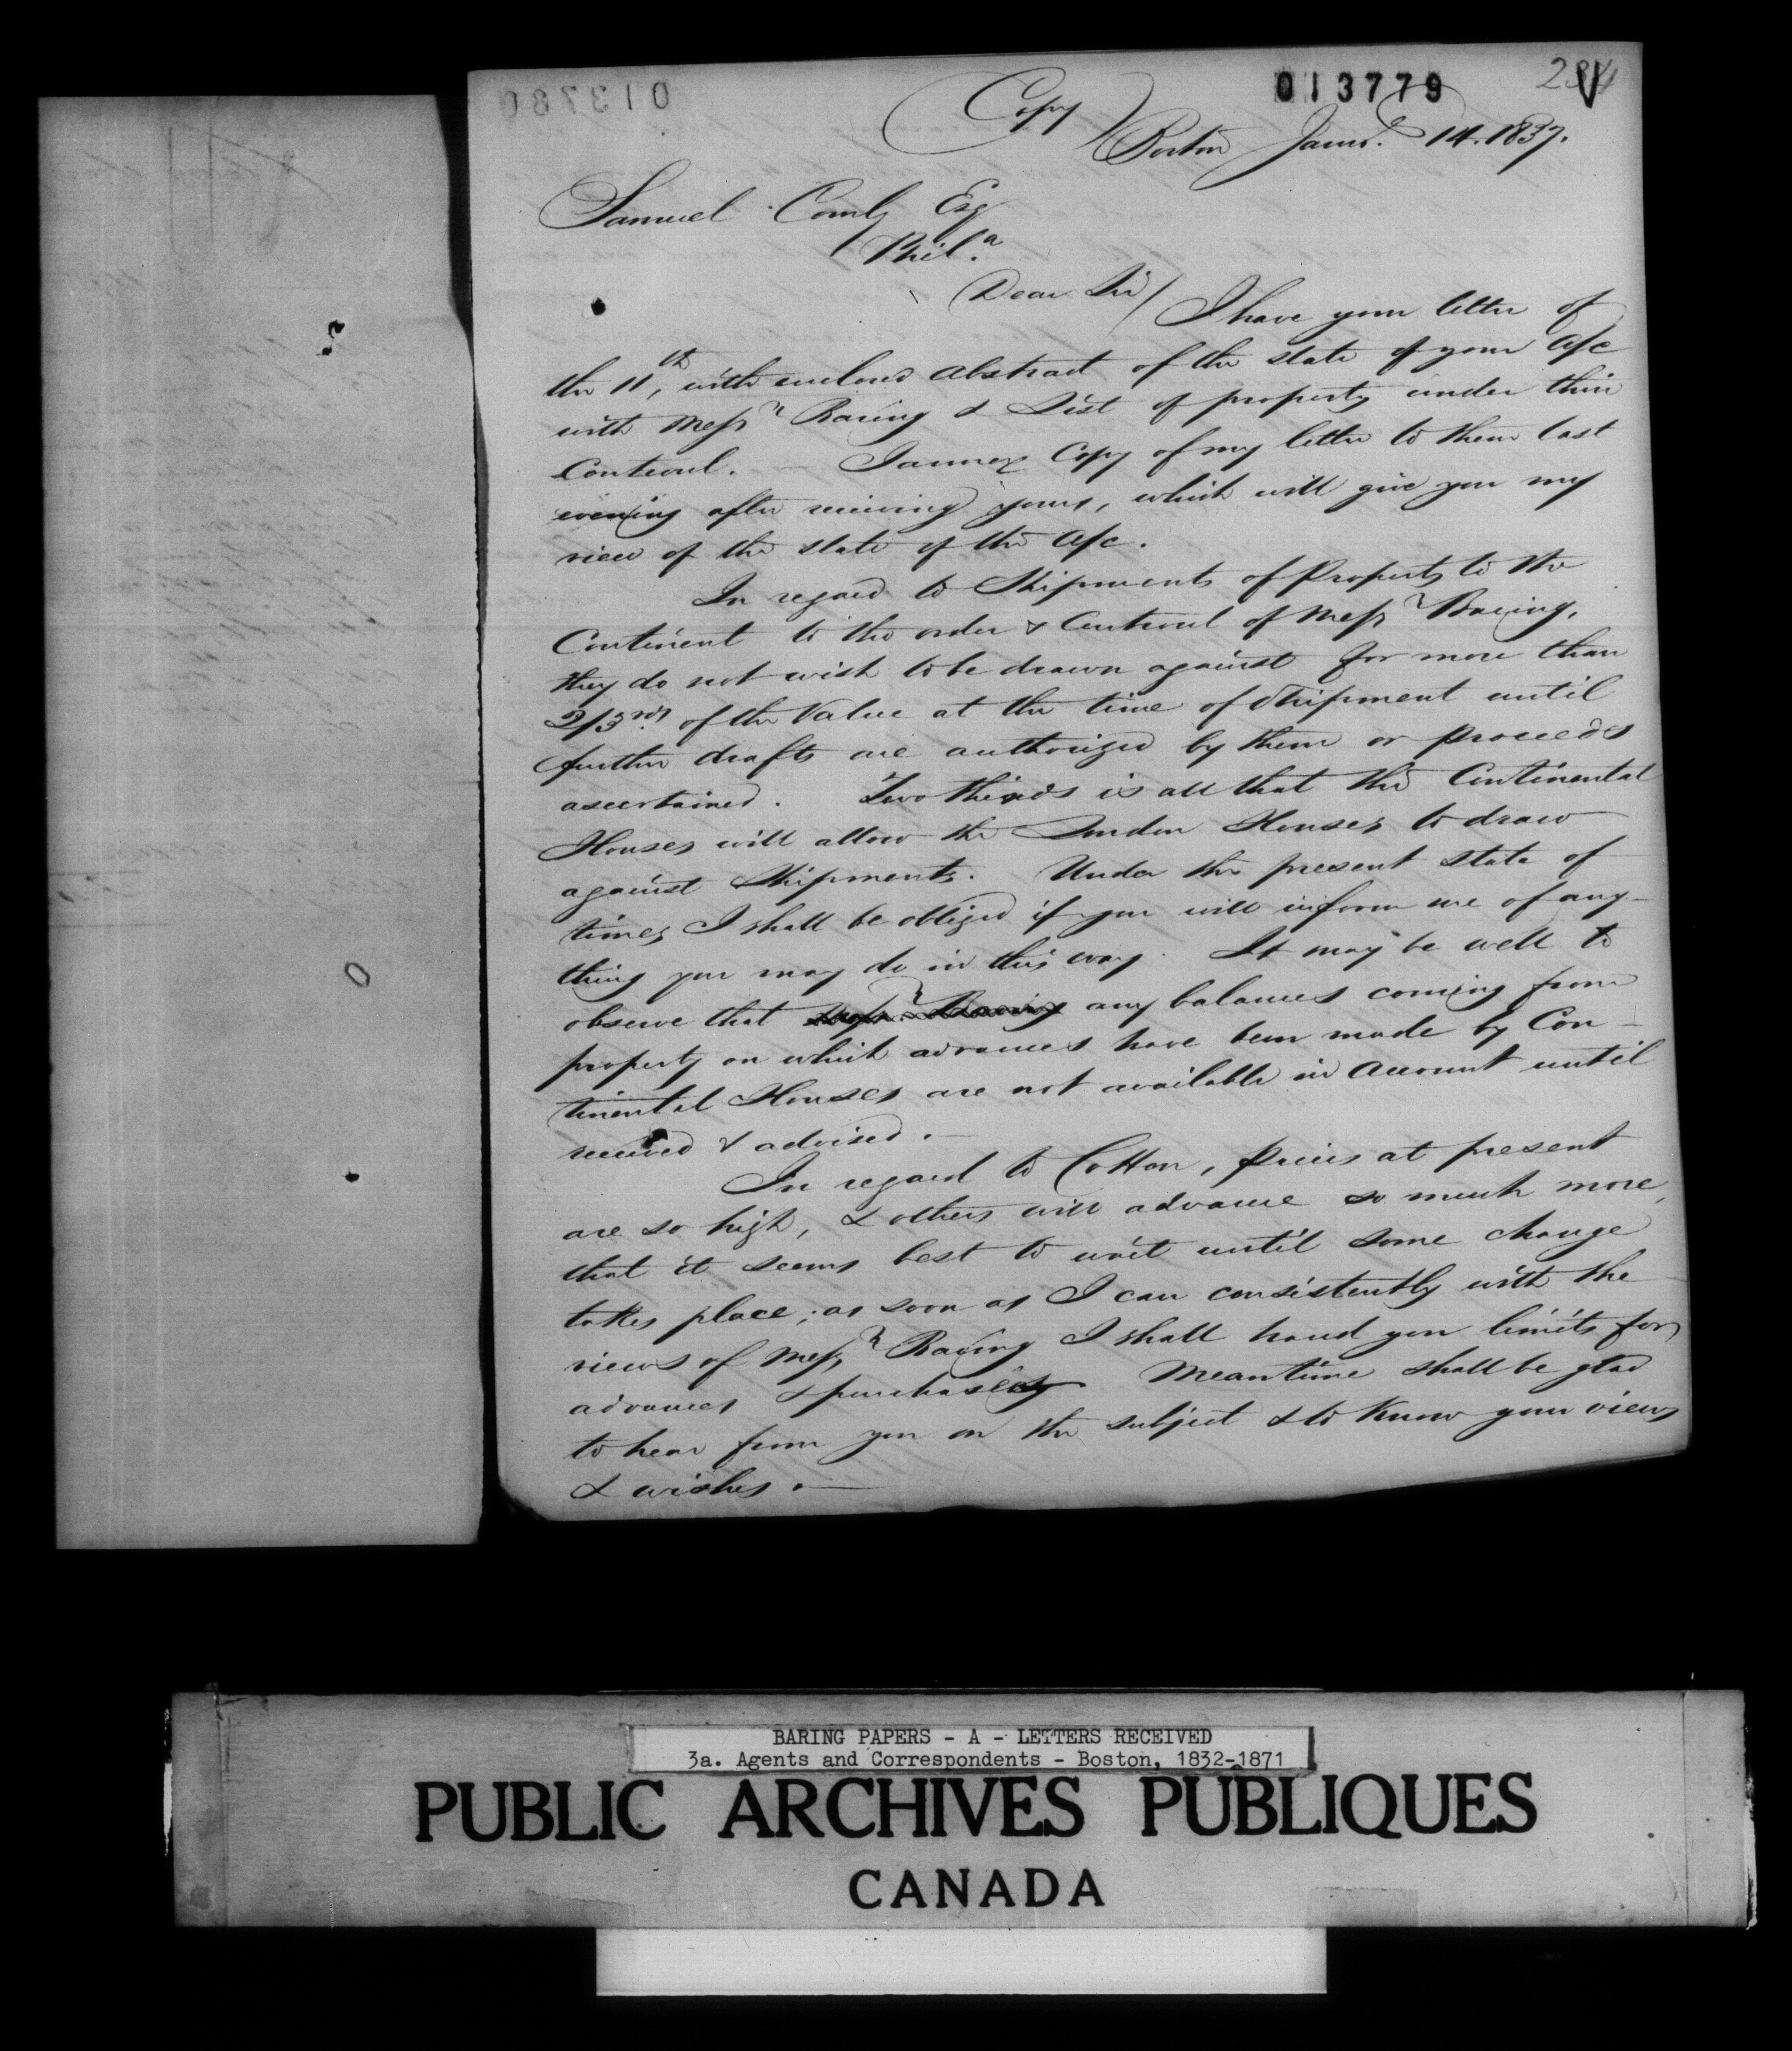 013779
Copy
Boston Jany. 14. 1837.
Samuel Comly Esq
Phil.a
Dear Sir / I have your letter of
the 11th, with enclosed abstract of the state of your a/c
with Messrs Baring & List of property under their
Controul. — I annex Copy of my letter to them last
evening after receiving yours, which will give you my
view of the state of the a/c.
In regard to Shipments of Property to the
Continent to the order & Controul of Messrs Baring,
they do not wish to be drawn against for more than
2/3rds. of the Value at the time of Shipment until
further drafts are authorized by them or proceeds
ascertained. Two thirds is all that the Continental
Houses will allow the London Houses to draw
against Shipments. Under the present state of
times I shall be obliged if you will inform me of any-
thing you may do in this way. It may be well to
observe that Messrs Baring any balances coming from
property on which advances have been made by Con-
tinental Houses are not available in Account until
received & advised. —
In regard to Cotton, prices at present
are so high, & others will advance so much more,
that it seems best to wait until some change
takes place; as soon as I can consistently with the
views of Messrs Baring I shall hand you limits for
advances & purchases Meantime shall be glad
to hear from you on the subject & to know your views
& wishes. —
BARING PAPERS - A - LETTERS RECEIVED
3a. Agents and Correspondents - Boston, 1832-1871
PUBLIC ARCHIVES PUBLIQUES
CANADA